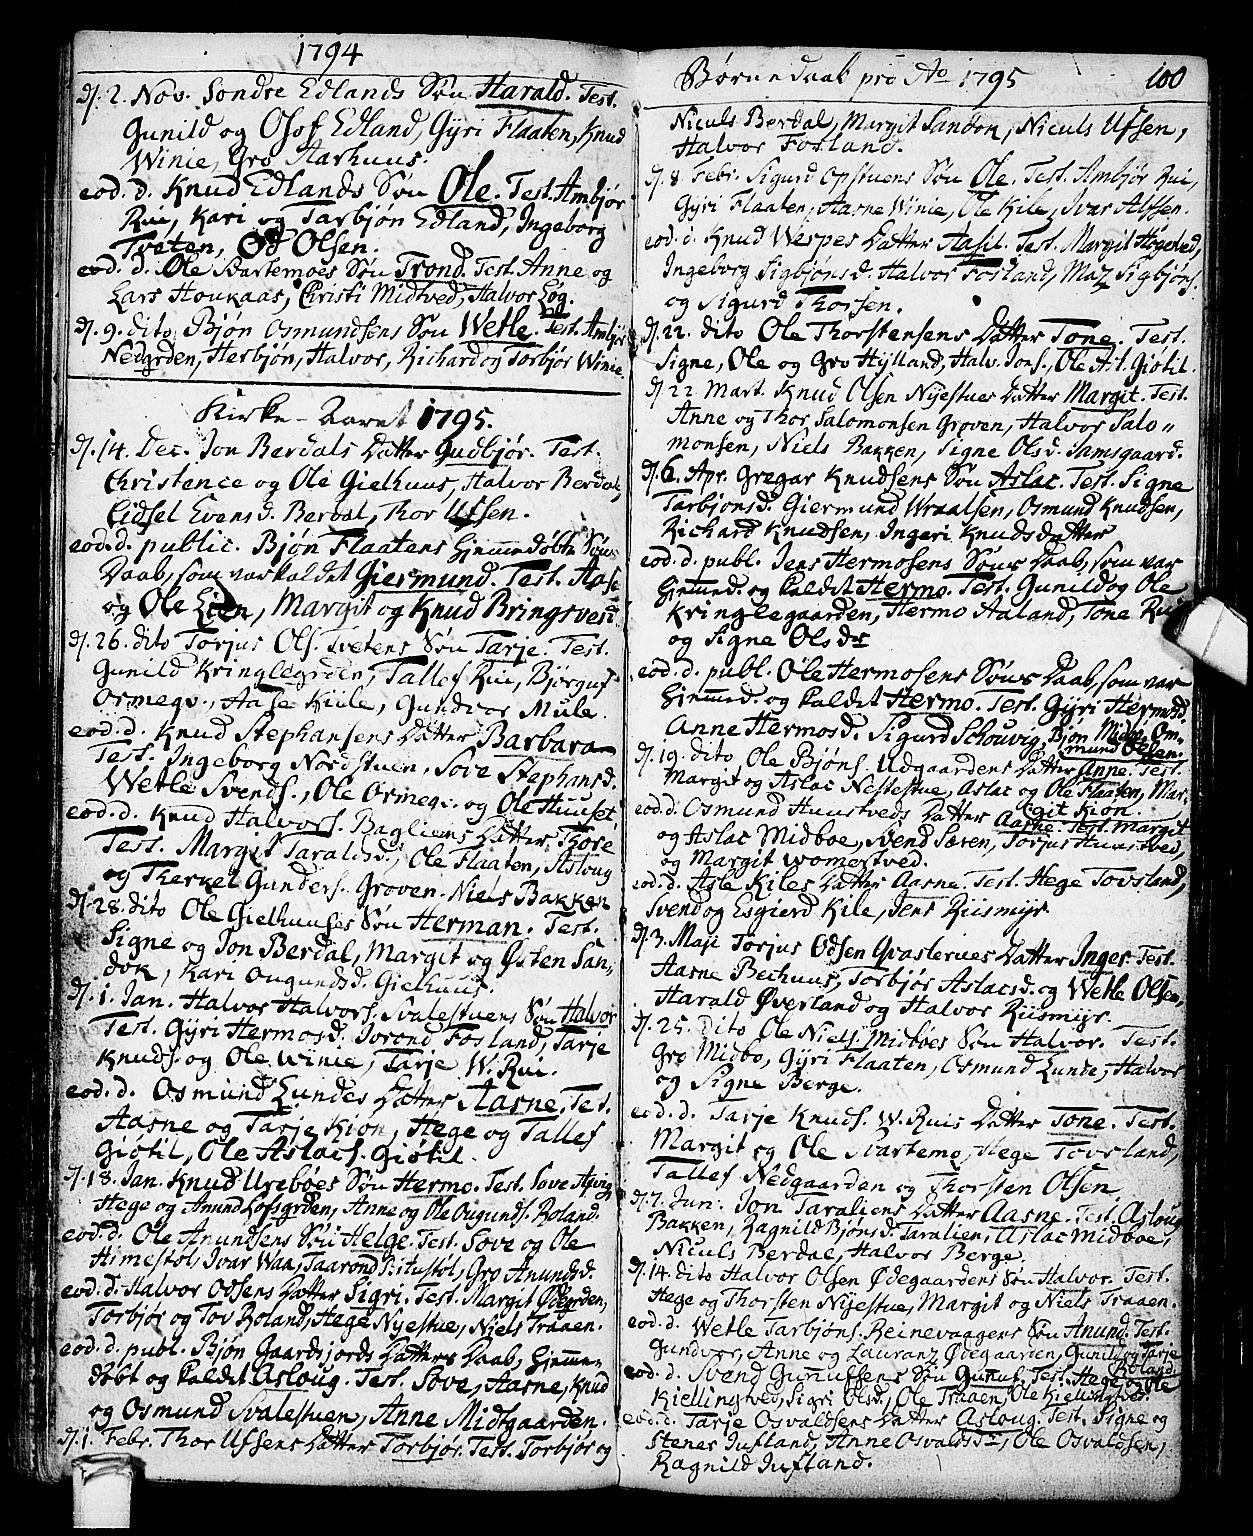 1794
dj. 2. Nov. Sondre Edlands Søn Harald. Test.
Gunild og Osof Edland, Gyri Flaaten, Knud
Winie, Gro Aarhuus.
eod. d. Knud Edlands Søn Ole. Test. Ambjør
Rui, Kari og Tarbjøn Edland, Ingeborg
Tveten, Od Olsen.
eod. d. Ole Svartemoes Søn Trond. Test. Anne og
Lars Houkaas, Christi Midtved, Halvor Løg.
dj. 9. dito Bjøn Osmundsens Søn Wetle. Test. Ambjør
Nedgrden, Herbjøn, Halvor, Richard og Torbjør Winie.
Kirke-Aaret 1795.
dj. 14. Dec. Jon Berdals Datter Gudbjør. Test.
Christence og Ole Gielhuus, Halvor Berdal,
Lidsel Evensd. Berdal, Thor Ufsen.
eod. d. public. Bjøn Flaatens hjemmedøbte Søns
Daab, som var kaldet Giermund. Test. Aase
og Ole Lien, Margit og Knud Bringsvert
dj. 26. dito Torjus Ols. Tvetens Søn Tarje. Test.
Gunild Kringlegrden, Tallef Rui, Bjørguf
Ormegr., Aase Kiile, Gundvor Mule.
eod. d. Knud Stephansens Datter Barbara
Test. Ingeborg Nordstuen, Sove Stephansd.
Wetle Svends., Ole Ormegr. og Ole Huuset
eod. d. Knud Halvors. Bagliens Datter Thore
Test. Margit Taraldsd., Ole Flaaten, Asloug
og Therkel Gunders. Groven. Niels Bakken
dj. 28. dito Ole Gielhuuses Søn Herman. Test.
Signe og Jon Berdal, Margit og Østen San-
dok, Kari Ougundsd. Gielhuus.
dj. 1. Jan. Halvor Halvors. Svalestuens Søn Halvor
Test. Gyri Hermosd. Jorond Fosland, Tarje
Knuds. og Ole Winie, Tarje W. Rui.
eod. d. Osmund Lundes Datter Aasne. Test.
Aasne og Tarje Kion, Hege og Tallef
Giøtil, Ole Aslacs. Giøtil.
dj. 18. Jan. Knud Urebøes Søn Hermo. Test. Sove
Hege og Amund Lofsgrden, Anne og Ole Ougunds. Roland.
eod. d. Ole Anundsens Søn Helge. Test. Sove og Ole
Himestøl, Ivar Waa, Taarond Bitustøl, Gro Anundsd.
eod. d. Halvor Olsens Datter Sigri. Test. Margit Ødegrden,
Torbjør og Tov Roland, Hege Nyestue, Niels Traaen.
eod. d. publ. Bjøn Gaardsjords Datters Daab, hjemme-
døbt og kaldet Asloug. Test. Sove, Aasne, Knud
og Osmund Svalestuen, Anne Midtgaarden.
dj. 1. Febr. Thor Ufsens Datter Torbjør. Test. Torbjør og
Børne daab pro Ao 1795
100
Niculs Berdal, Margit Sandok, Niculs Ufsen,
Halvor Fosland.
dj. 8. Febr. Sigurd Opstuens Søn Ole. Test. Ambjør Rui,
Gyri Flaaten, Aasne Winie, Ole Kile, Ivar Alfsen.
eod. d. Knud Wespes Datter Aasil. Test. Margit Høgetved,
Ingeborg Sigbjønsd. Halvor Fosland, Maz Sigbjøns.
og Sigurd Thorsen.
dj. 22. dito Ole Thorstensens Datter Tone. Test.
Signe, Ole og Gro Hylland, Halv. Jons., Ole Asl. Giøtil.
dj. 22 Mart. Knud Olsen Nyestues Datter Margit. Test.
Anne og Thor Salomonsen Groven, Halvor Salo-
monsen, Niels Bakken, Signe Olsd. Samsgaard.
dj. 6. Apr. Gregar Knudsens Søn Aslac. Test. Signe
Tarbjønsd. Giermund Wraalsen, Osmund Knudsen,
Richard Knudsen, Ingeri Knudsdatter
eod. d. publ. Jens Hermosens Søns Daab, som var
hjemmed. og kaldet Hermo. Test. Gunild og Ole
Kringlegaarden, Hermo Haland, Tone Rui
og Signe Olsdr
eod. d. publ. Ole Hermosens Søns Daab, som var
hjemmed. og kaldet Hermo. Test. Gyri Hermosd.
Anne Hermosd. Sigurd Schouvig, Bjøn Midbo, Om-
mund Olsen.
dj. 19. dito, Ole Bjøns. Udgaardens Datter Anne. Test.
Margit og Aslac Nestestue, Aslac og Ole Flaaten, Mar-
git Kion.
eod. d. Osmund Huustveds Datter Aasne. Test. Margit
og Aslac Midboe, Svend Særen, Torjus Huustved,
og Margit Womestved.
eod. d. Asle Kiles Datter Aasne. Test. Hege Tovsland,
Svend og Esgierd Kile, Jens Riismyr.
dj. 3. Maji Torjus Odsen Qvasleines Datter Inger. Test.
Aasne Bechuus, Torbjør Aslacsd. og Wetle Olsen,
Harald Øverland og Halvor Riismyr.
dj. 25. Dito Ole Niels. Midbøes Søn Halvor. Test.
Gro Midbo, Gyri Flaaten, Osmund Lunde, Halvor
og Signe Berge.
eod. d. Tarje Knuds. W. Ruis Datter Tone. Test.
Margit og Ole Svartemo, Hege Tovsland,
Tallef Nedgaarden og Thorsten Olsen.
dj. 7. Jun. Jon Taraliens Datter Aasne. Test. Asloug
Bakken, Ragnild Bjønsd. Taralien, Aslac Midboe,
Niculs Berdal, Halvor Berge.
dj. 14. dito Halvor Olsen Ødegaardens Søn Halvor. Test.
Hege og Thorsten Nyestue, Margit og Niels Traaen.
eod. d. Wetle Tarbjøns. Reinevaagens Søn Anund. Test.
Gundvor, Anne og Lauranz Ødegaarden, Gunild og Tarje
Roland.
eod. d. Svend Gunufsens Søn Gunuf. Test. Hege og Ole
Kiellingtved, Sigri Olsd., Ole Traaen, Ole Kiellingtved.
eod. d. Tarje Osvaldsens Datter Asloug. Test. Signe og
Stener Jufland, Anne Osvaldsdr, Ole Osvaldsen,
Ragnild Jufland.